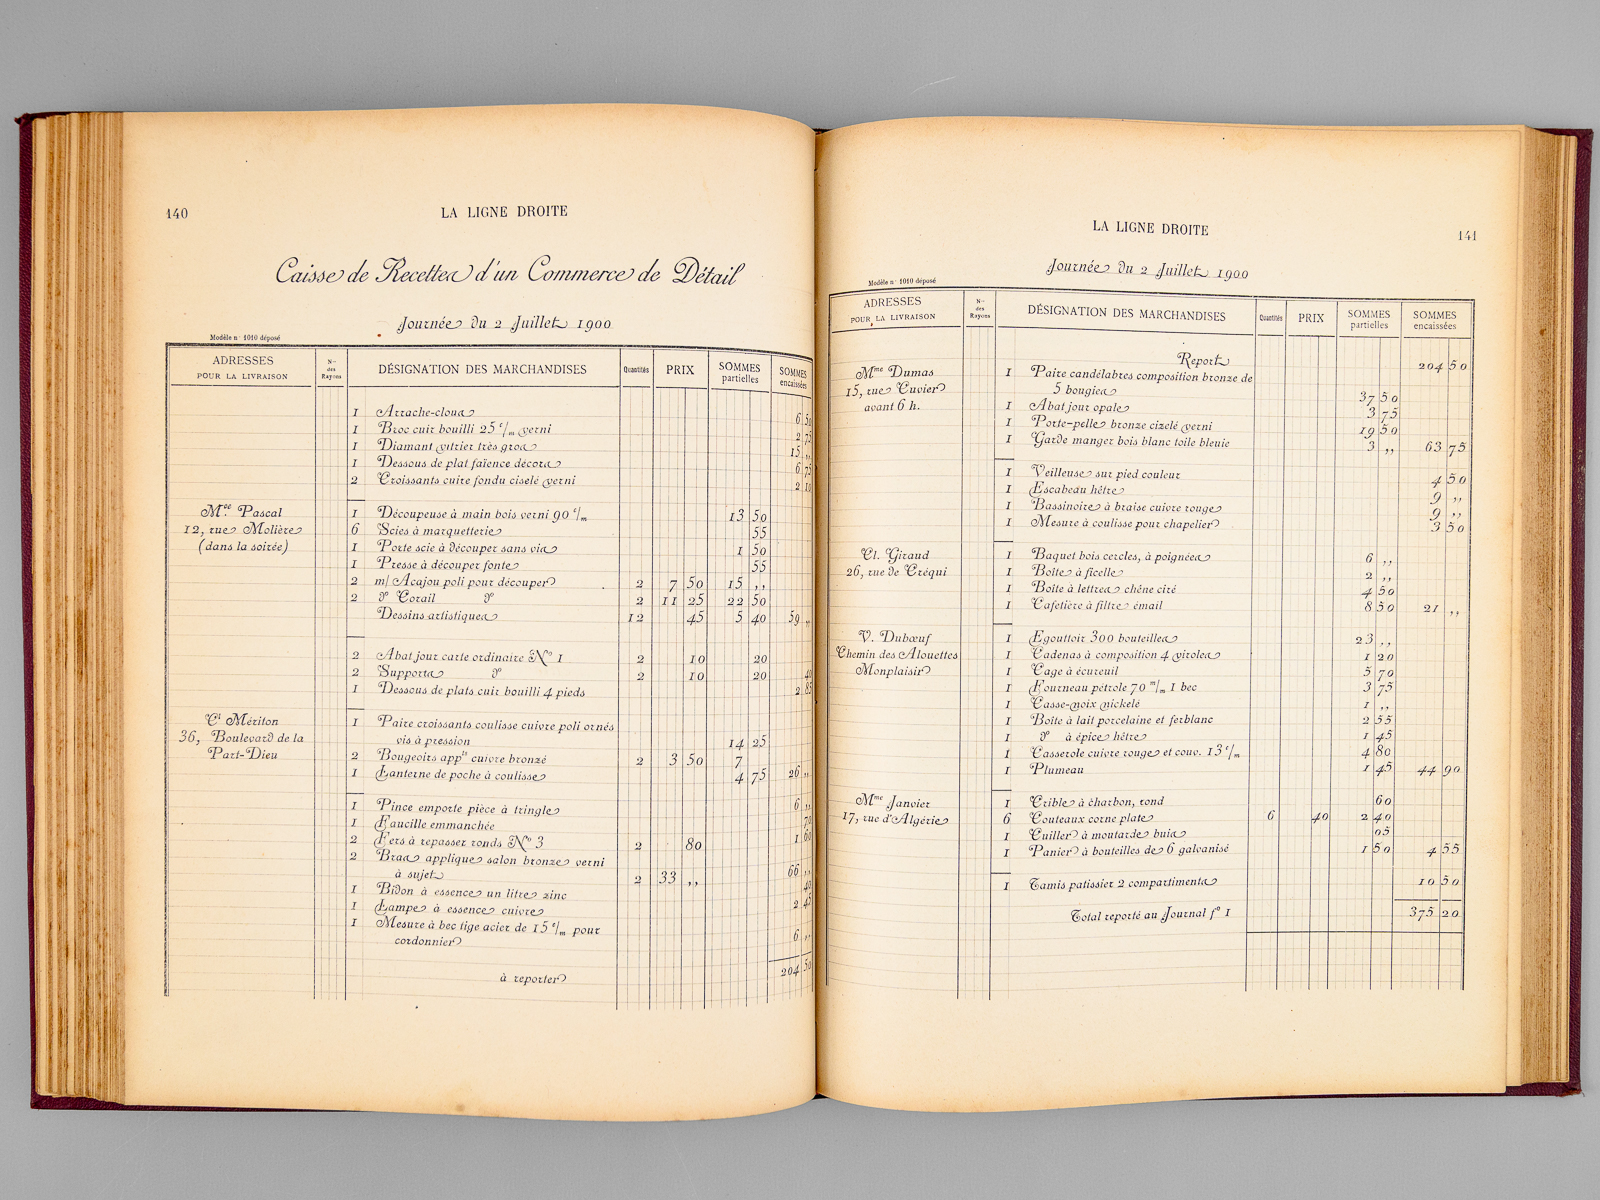 140
LA LIGNE DROITE
Caisse de Recettes d'un Commerce de Détail
Journée du 2 Juillet 1900
Modèle n° 1010 déposé
ADRESSES POUR LA LIVRAISON | Nos des Rayons | DÉSIGNATION DES MARCHANDISES | Quantités | PRIX | SOMMES partielles | SOMMES encaissées
1 Arrache-clous 6 50
1 Broc cuir bouilli 25 c/m verni 2 75
1 Diamant vitrier très gros 15 „
1 Dessous de plat faïence décors 6 75
2 Croissants cuire fondu ciselé verni 2 10
Mce Pascal 1 Découpeuse à main bois verni 90 c/m 13 50
12, rue Molière 6 Scies à marquetterie 55
(dans la soirée) 1 Porte scie à découper sans vis 1 50
1 Presse à découper fonte 55
2 m/ Acajou poli pour découper 2 7 50 15 „
2 do Corail do 2 11 25 22 50
Dessins artistiques 12 45 5 40 59 „
2 Abat jour carte ordinaire No 1 2 10 20
2 Supports do 2 10 20 40
1 Dessous de plats cuir bouilli 4 pieds 2 85
Ct Mériton 1 Paire croissants coulisse cuivre poli ornés
36, Boulevard de la vis à pression 14 25
Part-Dieu 2 Bougeoirs appts cuivre bronzé 2 3 50 7
1 Lanterne de poche à coulisse 4 75 26 „
1 Pince emporte pièce à tringle 6 „
1 Faucille emmanchée 70
2 Fers à repasser ronds No 3 2 80 1 60
2 Bras applique salon bronze verni
à sujet 2 33 „ 66 „
1 Bidon à essence un litre zinc 40
1 Lampe à essence cuivre 2 45
1 Mesure à bec tige acier de 15 c/m pour
cordonnier 6 „
à reporter 204 50
LA LIGNE DROITE
141
Journée du 2 Juillet 1900
Modèle n° 1010 déposé
ADRESSES POUR LA LIVRAISON | Nos des Rayons | DÉSIGNATION DES MARCHANDISES | Quantités | PRIX | SOMMES partielles | SOMMES encaissées
Report 204 50
Mme Dumas 1 Paire candélabres composition bronze de
15, rue Cuvier 5 bougies 37 50
avant 6 h. 1 Abat jour opale 3 75
1 Porte-pelle bronze cizelé verni 19 50
1 Garde manger bois blanc toile bleuie 3 „ 63 75
1 Veilleuse sur pied couleur 4 50
1 Escabeau hêtre 9 „
1 Bassinoire à braise cuivre rouge 9 „
1 Mesure à coulisse pour chapelier 3 50
Cl. Giraud 1 Baquet bois cercles, à poignées 6 „
26, rue de Créqui 1 Boîte à ficelle 2 „
1 Boîte à lettres chêne ciré 4 50
1 Cafetière à filtre émail 8 50 21 „
V. Dubœuf 1 Egouttoir 300 bouteilles 23 „
Chemin des Alouettes 1 Cadenas à composition 4 viroles 1 20
Monplaisir 1 Cage à écureuil 5 70
1 Fourneau pétrole 70 m/m 1 bec 3 75
1 Casse-noix nickelé 1 „
1 Boîte à lait porcelaine et ferblanc 2 55
1 do à épice hêtre 1 45
1 Casserole cuivre rouge et couv. 13 c/m 4 80
1 Plumeau 1 45 44 90
Mme Janvier 1 Crible à charbon, rond 60
17, rue d'Algérie 6 Couteaux corne plate 6 40 2 40
1 Cuiller à moutarde buis 05
1 Panier à bouteilles de 6 galvanisé 1 50 4 55
1 Tamis patissier 2 compartiments 10 50
Total reporté au Journal fo 1 375 20